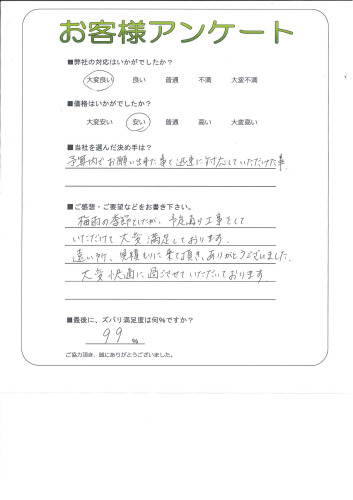 お客様アンケート
■弊社の対応はいかがでしたか？
大変良い 良い 普通 不満 大変不満
■価格はいかがでしたか？
大変安い 安い 普通 高い 大変高い
■当社を選んだ決め手は？
予算内でお願い出来た事と迅速に対応していただけた事
■ご感想・ご要望などをお書き下さい。
梅雨の季節でしたが、予定通り工事をして
いただけて大変満足しております。
遠い所、見積もりに来て頂き、ありがとうございました。
大変快適に過ごさせていただいております。
■最後に、ズバリ満足度は何％ですか？
99 ％
ご協力頂き、誠にありがとうございました。